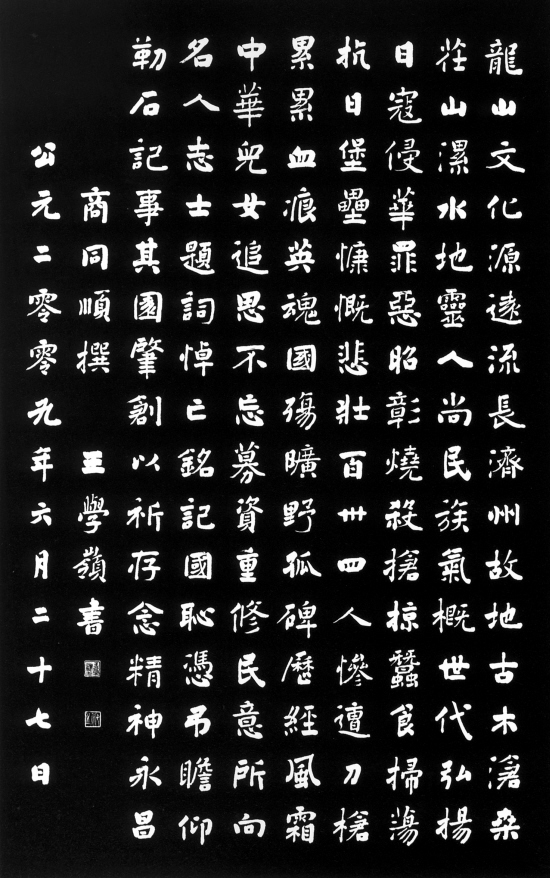 龍山文化源遠流長濟州故地古木滄桑
茌山漯水地靈人尚民族氣概世代弘揚
日寇侵華罪惡昭彰燒殺搶掠蠶食掃蕩
抗日堡壘慷慨悲壯百卅四人慘遭刀槍
累累血痕英魂國殤曠野孤碑歷經風霜
中華兒女追思不忘募資重修民意所向
名人志士題詞悼亡銘記國恥憑弔瞻仰
勒石記事其園肇創以祈存念精神永昌
商同順撰 王學嶺書
公元二零零九年六月二十七日